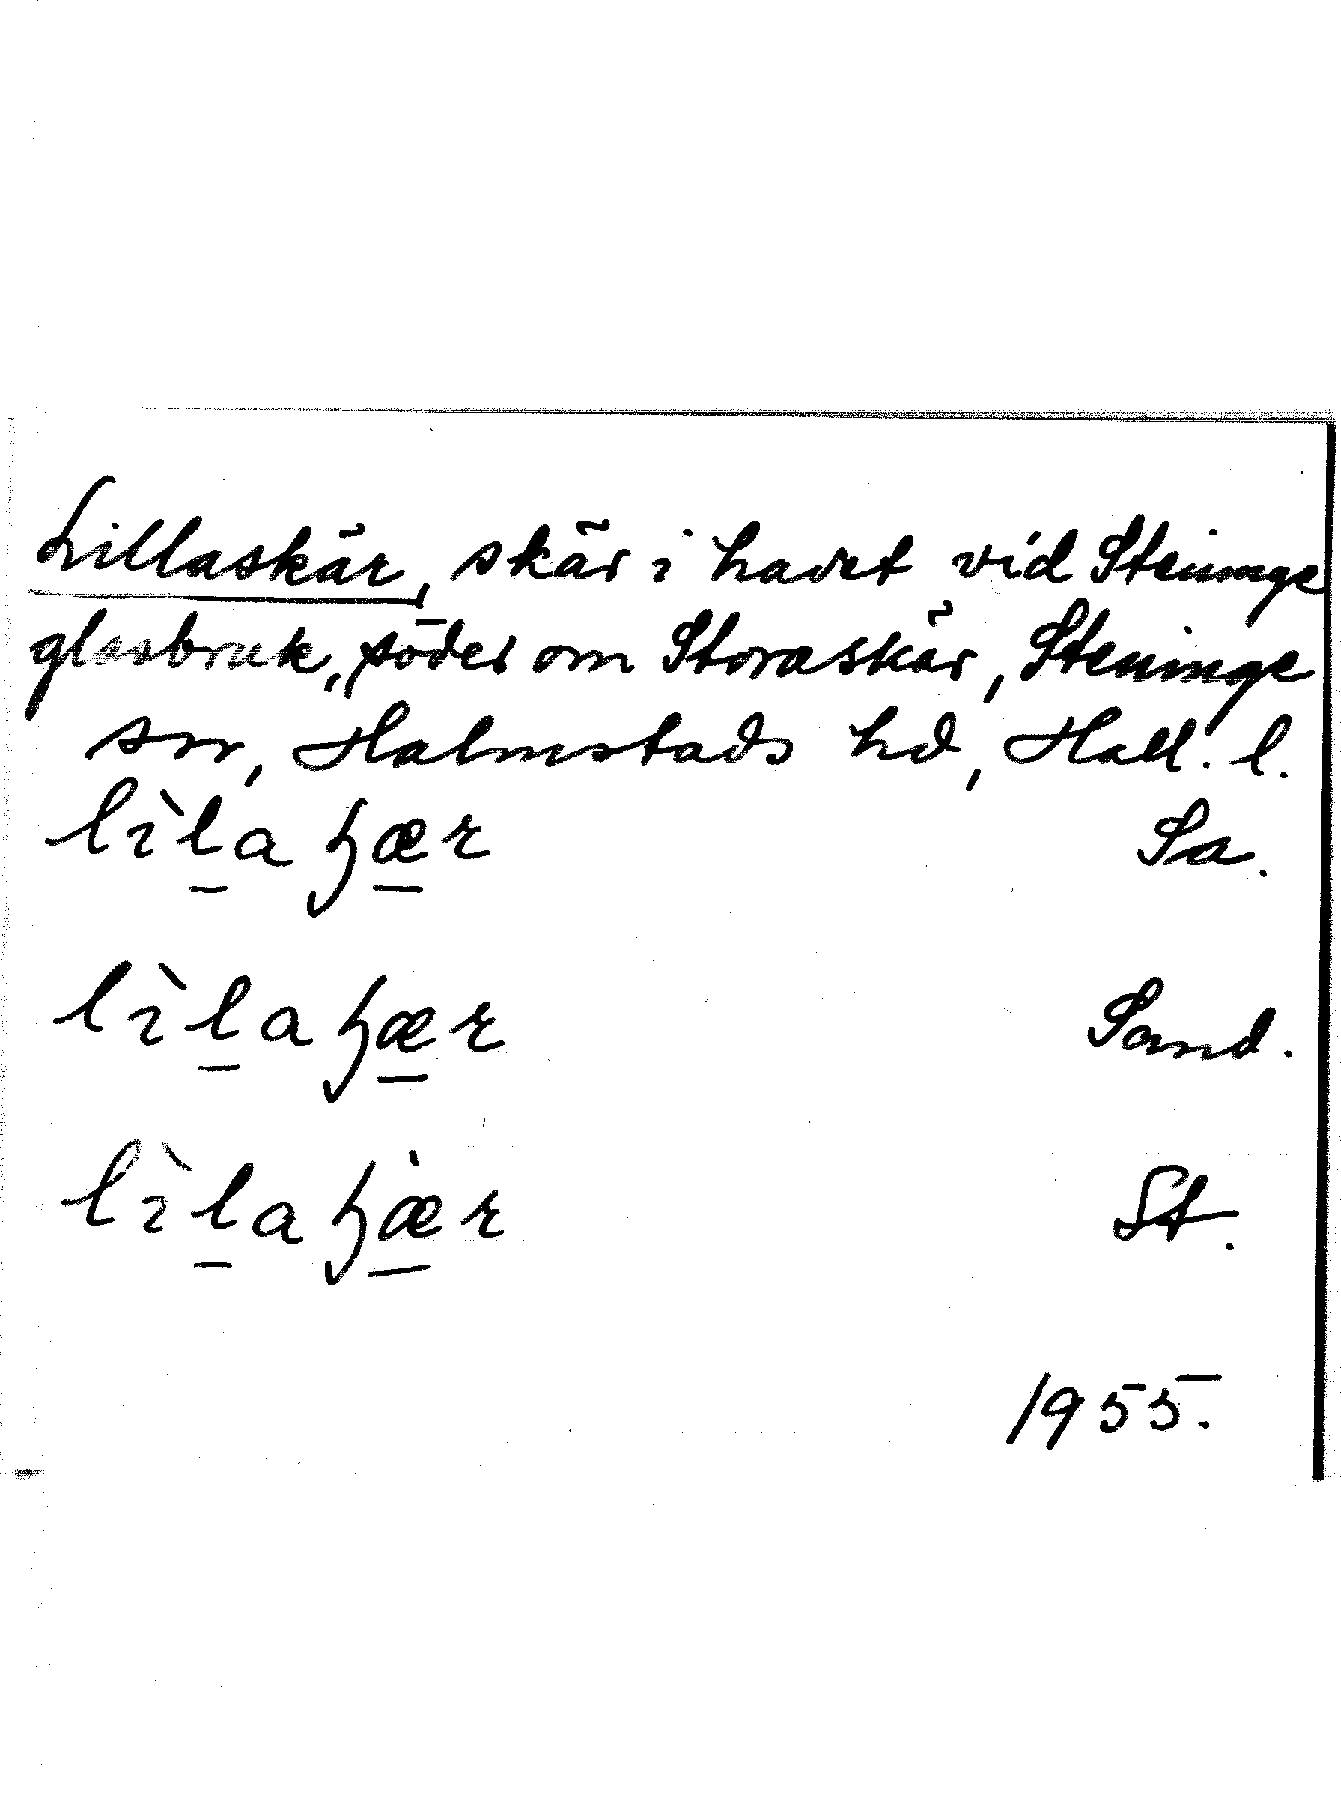 Lillaskär, skär i havet vid Steninge
glasbruk, söder om Storaskär, Steninge
sn, Halmstads hd, Hall. l.
lìlaʖær Sa.
lìlaʖær Sand.
lìlaʖæ̀r St.
1955.